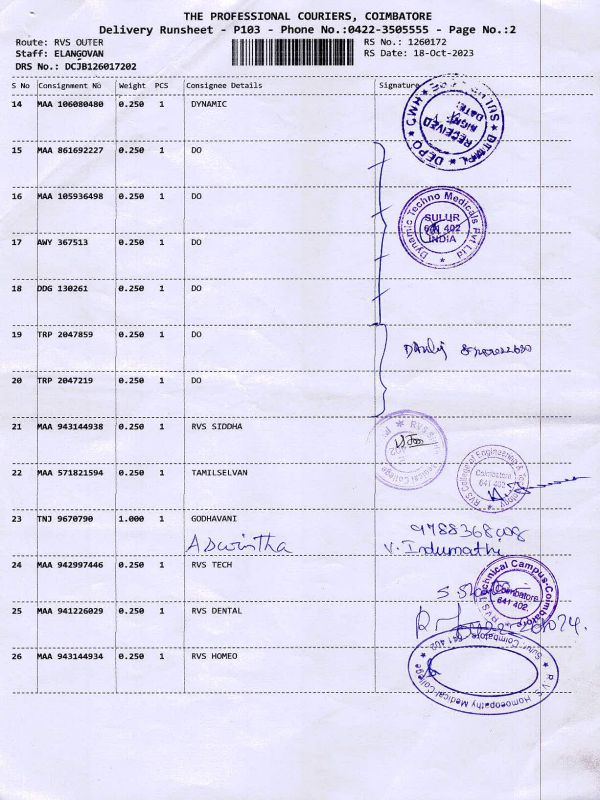 THE PROFESSIONAL COURIERS, COIMBATORE
Delivery Runsheet - P103 - Phone No.:0422-3505555 - Page No.:2
Route: RVS OUTER RS No.: 1260172
Staff: ELANGOVAN RS Date: 18-Oct-2023
DRS No.: DCJB126017202
S No Consignment No Weight PCS Consignee Details Signature
14 MAA 106080480 0.250 1 DYNAMIC
DEPO CWH SULUR BTMPL
RECEIVED
SIGN:
DATE:
15 MAA 861692227 0.250 1 DO
16 MAA 105936498 0.250 1 DO
Dynamic Techno Medicals Pvt Ltd
SULUR
641 402
INDIA
17 AWY 367513 0.250 1 DO
18 DDG 130261 0.250 1 DO
19 TRP 2047859 0.250 1 DO
20 TRP 2047219 0.250 1 DO
21 MAA 943144938 0.250 1 RVS SIDDHA
RVS Medical College
22 MAA 571821594 0.250 1 TAMILSELVAN
RVS College of Engineering & Technology
Coimbatore
641 402
23 TNJ 9670790 1.000 1 GODHAVANI
Aswintha V. Indumathi
24 MAA 942997446 0.250 1 RVS TECH
RVS Technical Campus-Coimbatore
Coimbatore
641 402.
25 MAA 941226029 0.250 1 RVS DENTAL
26 MAA 943144934 0.250 1 RVS HOMEO
R.V.S. Homoeopathy Medical College
Sulur, Coimbatore 641 402